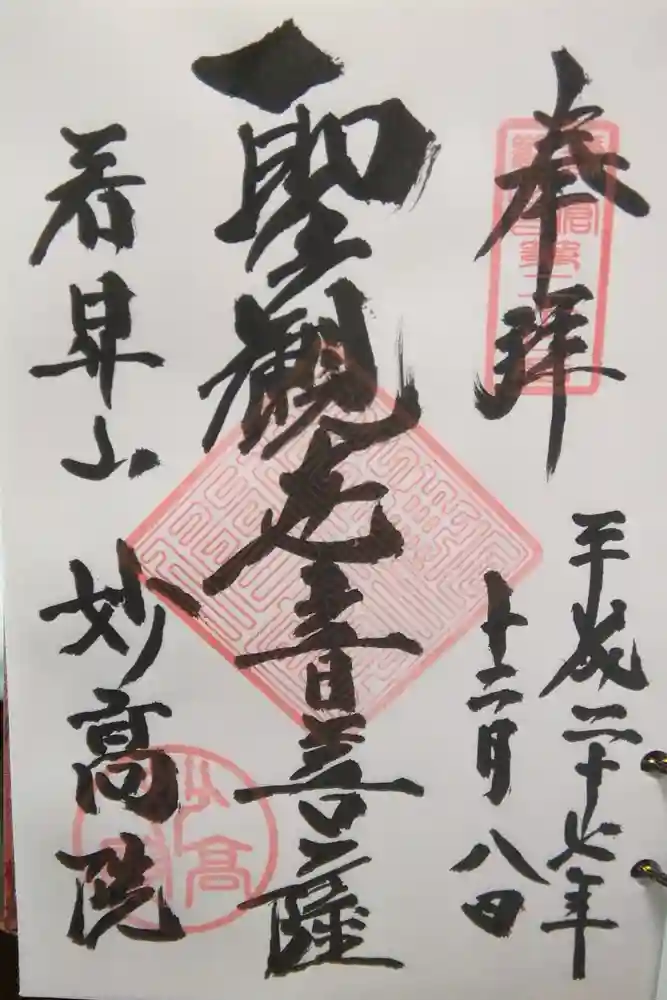 奉拝
平成二十七年
十二月八日
聖観世音菩薩
若昇山 妙高院